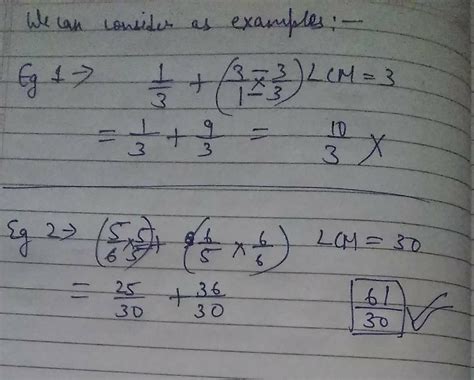 We can consider as examples:-
Eg 1→ 1/3 + (3/1 × 3/3) LCM = 3
= 1/3 + 9/3 = 10/3 ×
Eg 2→ (5/6 × 5/5) + (6/5 × 6/6) LCM = 30
= 25/30 + 36/30 61/30 ✓